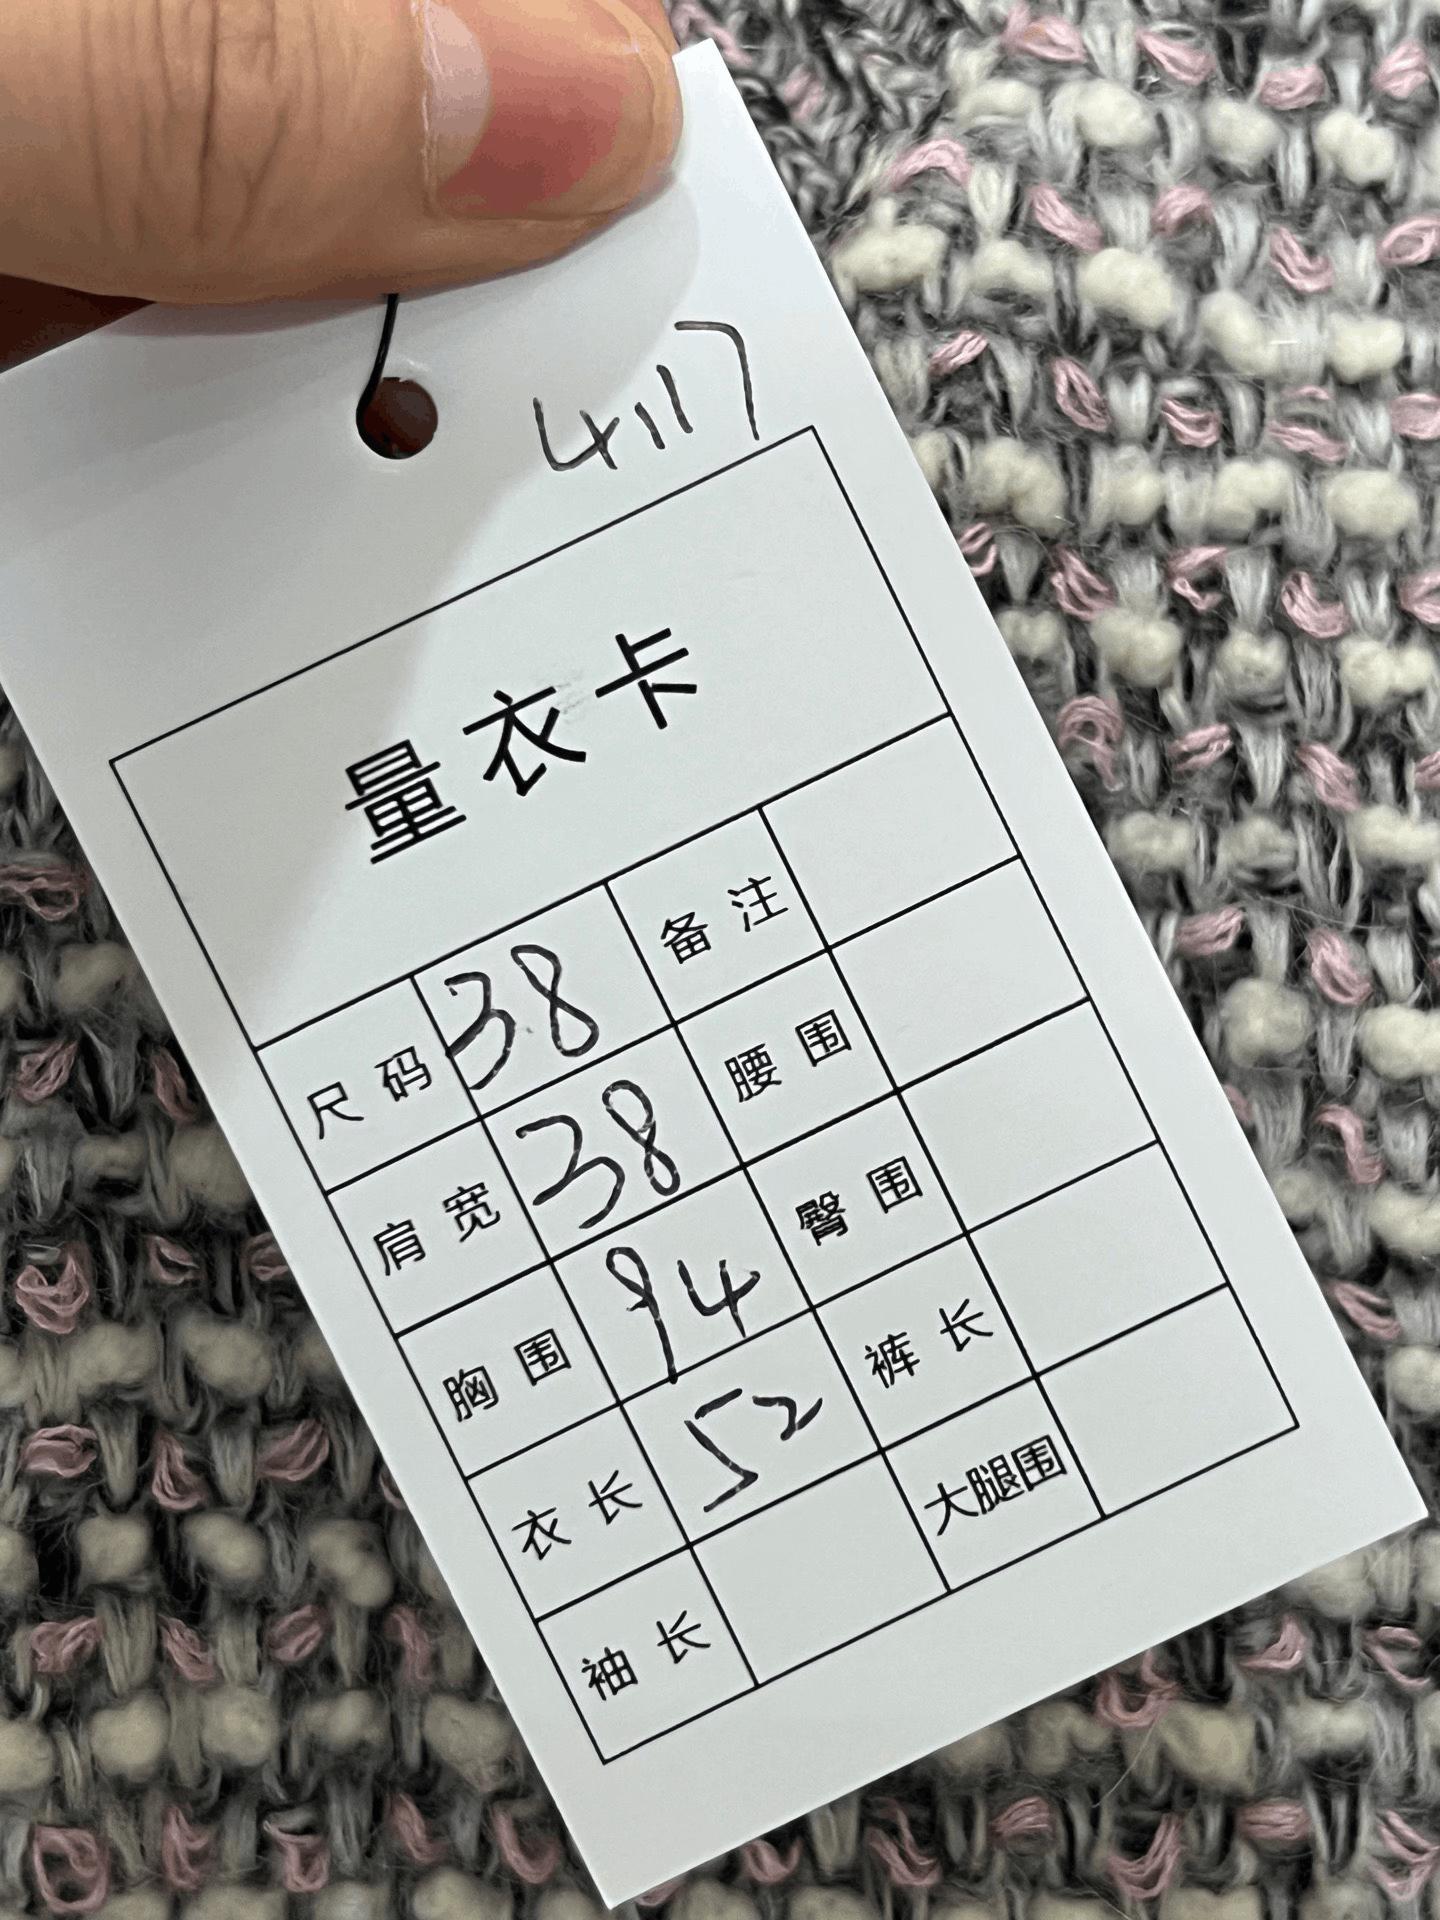 4117
量衣卡
尺码 38 备注
肩宽 38 腰围
胸围 94 臀围
衣长 52 裤长
袖长 大腿围